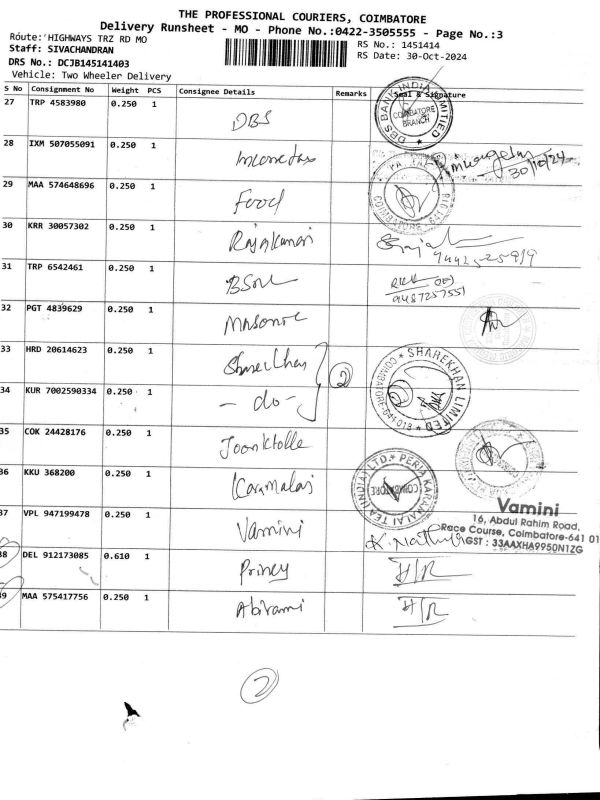 THE PROFESSIONAL COURIERS, COIMBATORE
Delivery Runsheet - MO - Phone No.:0422-3505555 - Page No.:3
Route: HIGHWAYS TRZ RD MO
RS No.: 1451414
Staff: SIVACHANDRAN
RS Date: 30-Oct-2024
DRS No.: DCJB145141403
Vehicle: Two Wheeler Delivery
S No Consignment No Weight PCS Consignee Details Remarks Seal & Signature
27 TRP 4583980 0.250 1 DBS
DBS BANK INDIA LIMITED
COIMBATORE BRANCH
28 IXM 507055091 0.250 1 Incometax
30/10/24
29 MAA 574648696 0.250 1 Food
30 KRR 30057302 0.250 1 Rajakumari
31 TRP 6542461 0.250 1 BSNL
9487257551
32 PGT 4839629 0.250 1 Masonic
33 HRD 20614623 0.250 1 Sharekhan
2
SHAREKHAN LIMITED
COIMBATORE-641 018
34 KUR 7002590334 0.250 1 - do -
35 COK 24428176 0.250 1
36 KKU 368200 0.250 1 Karamalai
PERIA KARAMALAI TEA (INDIA) LTD.
COIMBATORE
37 VPL 947199478 0.250 1 Vamini
Vamini
16, Abdul Rahim Road,
Race Course, Coimbatore-641 01
GST : 33AAXHA9950N1ZG
38 DEL 912173085 0.610 1 H/R
39 MAA 575417756 0.250 1 Abirami H/R
2